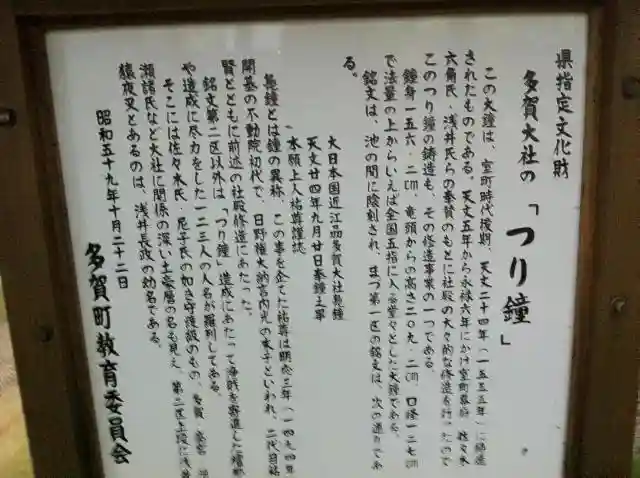 県指定文化財
多賀大社の「つり鐘」
この大鐘は、室町時代後期、天文二十四年(一五五五年)に鋳造
されたものである。天文五年から永禄六年にかけ室町幕府、佐々木
六角氏、浅井氏らの奉賛のもとに社殿の大々的な修造を行ったので
このつり鐘の鋳造も、その修造事業の一つである。
鐘身一五六・二cm、竜頭からの高さ二〇九・二cm、口径一二七cm
で法量の上からいえば全国五指に入る堂々とした大鐘である。
銘文は、池の間に陰刻され、まづ第一区の銘文は、次の通りであ
る。
大日本国近江品多賀大社鳧鐘
天文廿四年九月廿日奉鐘之畢
本願上人祐尊謹誌
鳧鐘とは鐘の異称、この事を企てた祐尊は明応三年(一四九四
開基の不動院初代で、日野権大納言内光の末子といわれ、二代目祐
賢とともに前述の社殿修造にあたった。
銘文第二区以外は、「つり鐘」造成にあたって浄財を寄進した
や造成に尽力をした一二三人の人名が羅列してある。
そこには佐々木氏、尼子氏の如き守護級のもの、多賀、
瀬諸氏など大社に関係の深い土豪層の名も見え、第二区上段に浅井
猿夜叉とあるのは、浅井長政の幼名である。
昭和五十九年十月二十二日
多賀町教育委員会